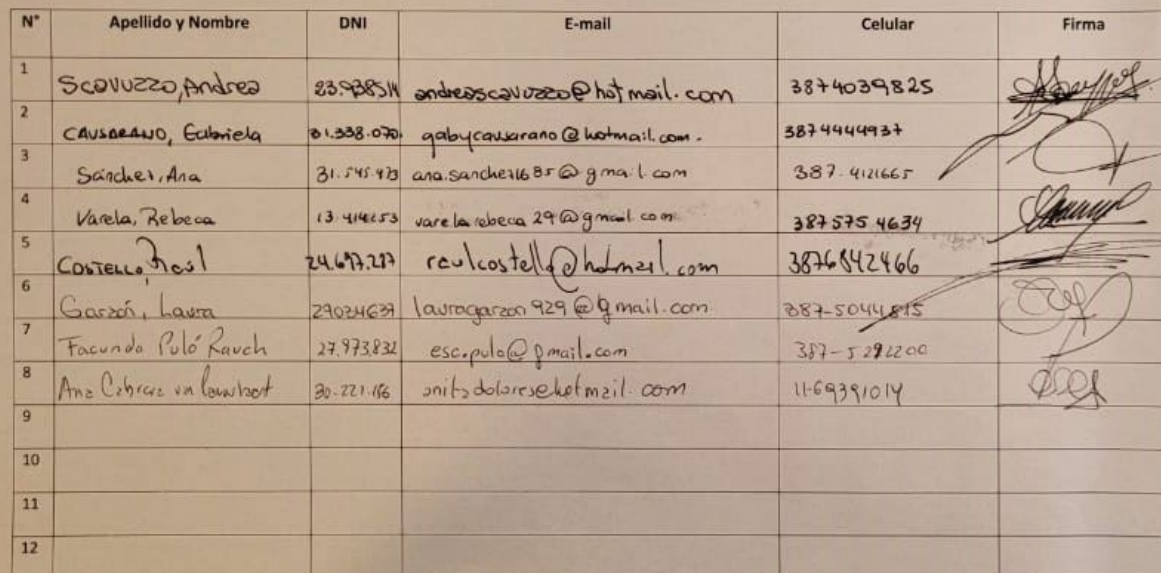 N° Apellido y Nombre DNI E-mail Celular Firma
1 Scavuzzo, Andrea 23.938514 andreascavuzzo@hotmail.com 3874039825
2 CAUSARANO, Gabriela 31.338.070 gabycausarano@hotmail.com. 3874444937
3 Sánchez, Ana 31.545.473 ana.sanchez1685@gmail.com 387.4121665
4 Varela, Rebeca varelarebeca29@gmail.com 387575 4634
5 COSTELLO, Raúl 24.697.287 raulcostello@hotmail.com 3876842466
6 Garzón, Laura 29024637 lauragarzon929@gmail.com. 387-5044815
7 Facundo Puló Rauch 27.973.832 esc.pulo@gmail.com 387-5292200
8 Ana 30.221.166 anitadolores@hotmail.com 11-69391014
9
10
11
12